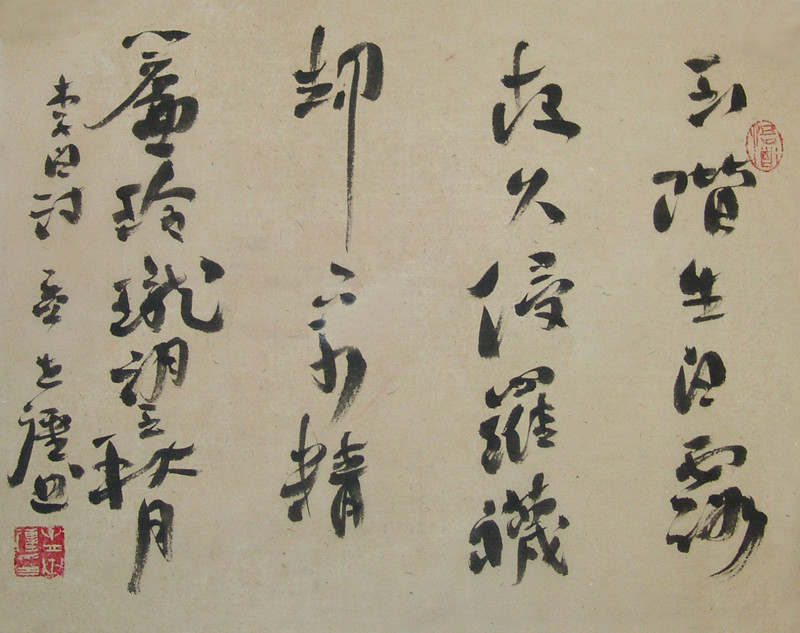 玉階生白露
夜久侵羅襪
却下水精
簾玲瓏望秋月
李白詩